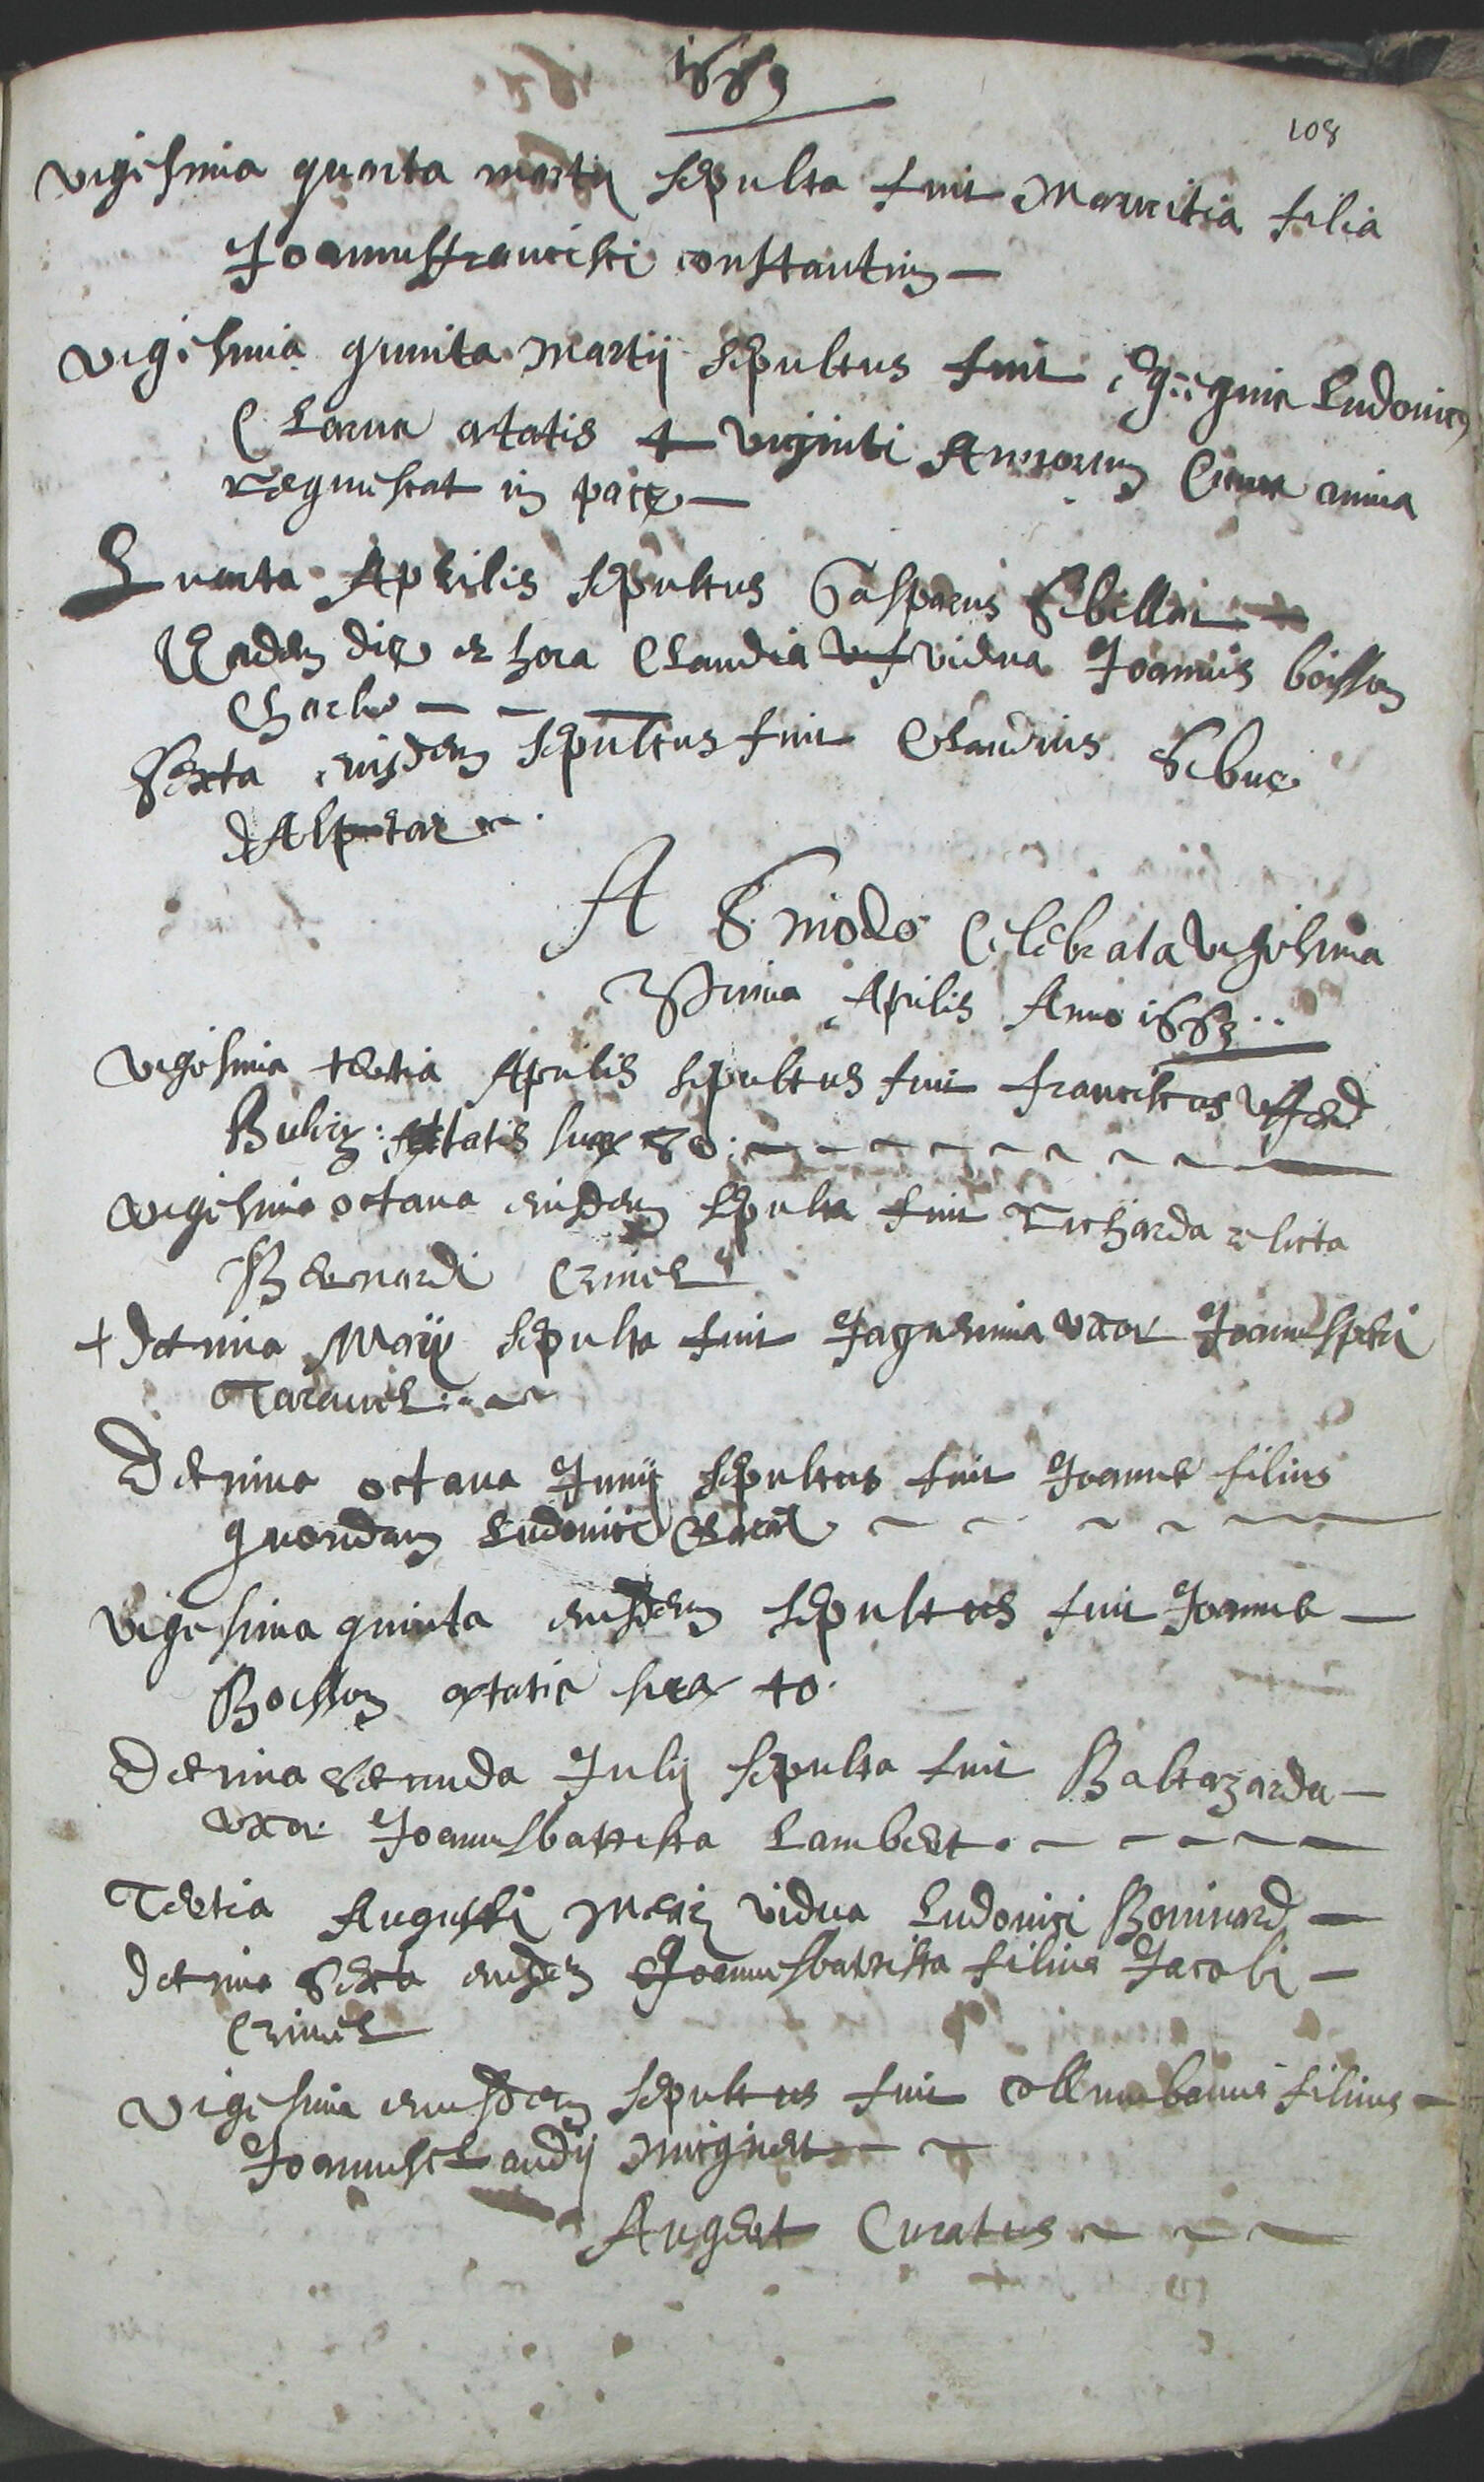 1663
108
vigesima quarta martij sepulta fuit Mauritia filia
Joannisfrancisci constantin —
vigesima quinta Martij sepultus fuit Ludovicus
Claraz ætatis viginti Annorum Cuius anima
requiescat in pace —
Quarta Aprilis sepultus Gasparus Sibillat —
Eadem die et hora Claudia vidua Joannis boisson
Charlo — — —
Sexta eiusdem sepultus fuit Claudius Sibue
A Sinodo Celebrata vigesima
Prima Aprilis Anno 1663
vigesima tertia Aprilis sepultus fuit franciscus
ætatis suæ 80
vigesima octava eiusdem sepulta fuit Richarda relicta
Bernardi Crinel
+ decima Maij sepulta fuit Jaquemina uxor Joannispetri
Taravel
Decima octava Junij sepultus fuit Joannes filius
quondam Ludovici
vigesima quinta eiusdem sepultus fuit Joannes —
Boisson ætatis suæ 40.
Decima secunda Julij sepulta fuit Baltazarda —
uxor Joannisbattista Lambert
Tertia Augusti vidua Ludovici Bonivard —
decima sexta eiusdem Joannesbattista filius Jacobi —
Crinel
vigesima eiusdem sepultus fuit collumbanus filius —
Joannisclaudij mugnier
Augert Curatus